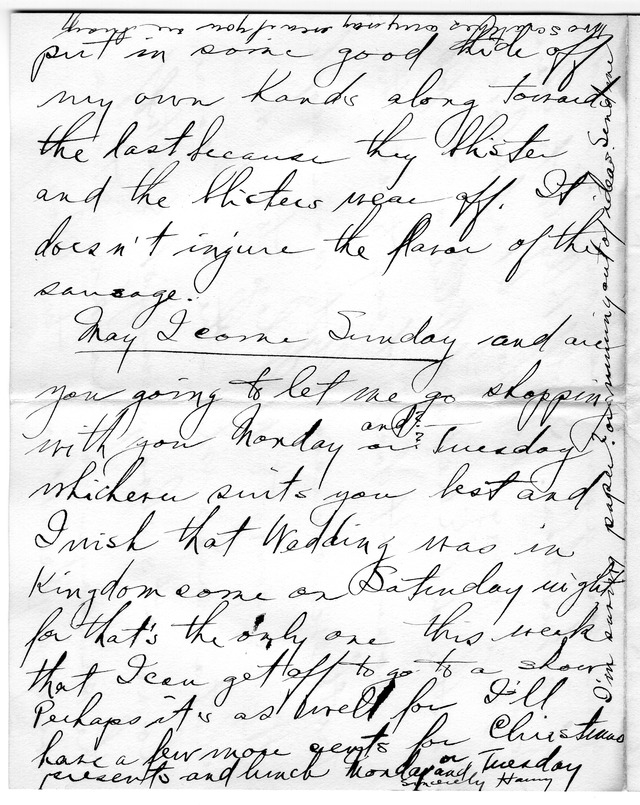 put in some good hide off
my own hands along toward
the last because they blister
and the blisters wear off. It
doesn't injure the flavor of the
sausage.
May I come Sunday and are
you going to let me go shopping
with you Monday and?? or Tuesday
whichever suits you best and
I wish that Wedding was in
Kingdom come on Saturday night
for that's the only one this week
that I can get off to go to a show
Perhaps it is as well for I'll
have a few more cents for Christmas
presents and lunch Monday or and Tuesday
Sincerely Harry
I'm saving paper. or running out of ideas. Send me
two scratches anyway even if you are